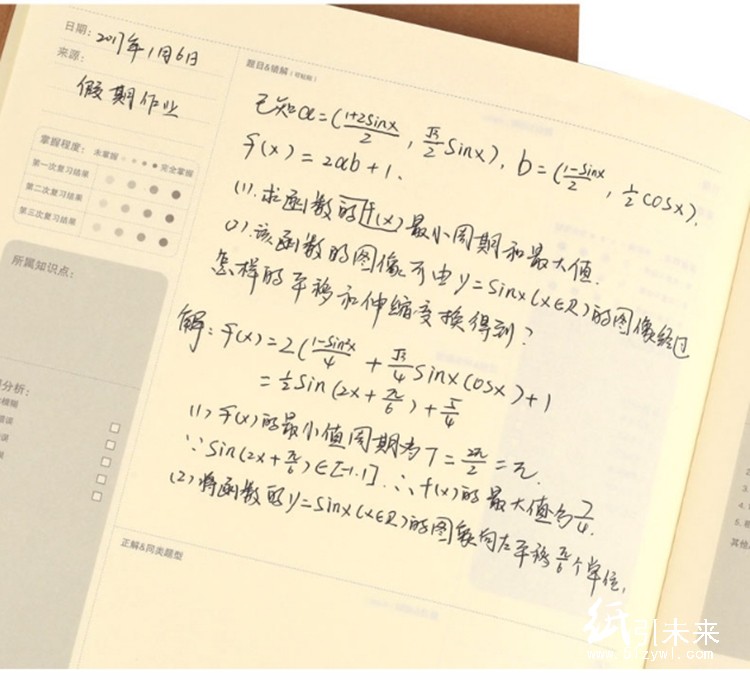 日期: 2017年1月6日
来源:
假期作业
掌握程度: 未掌握 完全掌握
第一次复习结果
第二次复习结果
第三次复习结果
所属知识点:
分析:
题目&错解(可粘贴)
已知a=(1+2sinx/2, √3/2 sinx), b=(1-sinx/2, 1/2 cosx).
f(x)=2ab+1.
(1).求函数的f(x)最小周期和最大值.
(2).该函数的图像可由y=sinx(x∈R)的图像经过
怎样的平移和伸缩变换得到?
解: f(x)=2(1-sin²x/4 + √3/4 sinxcosx)+1
=1/2 sin(2x+π/6)+5/4
(1) f(x)的最小值周期为T=2π/2=π.
∵sin(2x+π/6)∈[-1.1].∴f(x)的最大值为7/4.
(2)将函数的y=sinx(x∈R)的图象向左平移π/6个单位,
正解&同类题型
其他
纸引未来